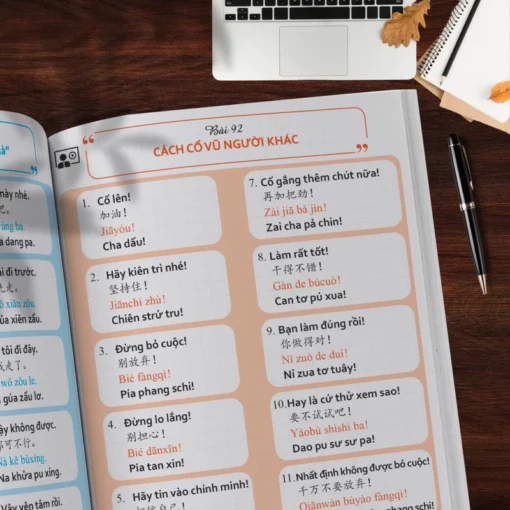 này nhé.
吧。
a dang pa.
i đi trước.
先走。
ủa xiên zẩu.
tôi đi đây.
走了。
wǒ zǒu le.
ủa zẩu lơ.
ậy không được.
你可不行。
Nà kě bùxíng.
Na khửa pu xíng.
Vậy yên tâm rồi.
Bài 92
CÁCH CỔ VŨ NGƯỜI KHÁC
1. Cố lên!
加油！
Jiāyóu!
Cha dấu!
2. Hãy kiên trì nhé!
坚持住！
Jiānchí zhù!
Chiên strứ tru!
3. Đừng bỏ cuộc!
别放弃！
Bié fàngqì!
Pía phang schi!
4. Đừng lo lắng!
别担心！
Bié dānxīn!
Pía tan xin!
5. Hãy tin vào chính mình!
相信自己！
7. Cố gắng thêm chút nữa!
再加把劲！
Zài jiā bǎ jìn!
Zai cha pả chin!
8. Làm rất tốt!
干得不错！
Gàn de bùcuò!
Can tơ pú xua!
9. Bạn làm đúng rồi!
你做得对！
Nǐ zuò de duì!
Nỉ zua tơ tuây!
10. Hay là cứ thử xem sao!
要不试试吧！
Yàobù shìshi ba!
Dao pu sư sư pa!
11. Nhất định không được bỏ cuộc!
千万不要放弃！
Qiānwàn bùyào fàngqì!
phang schi!